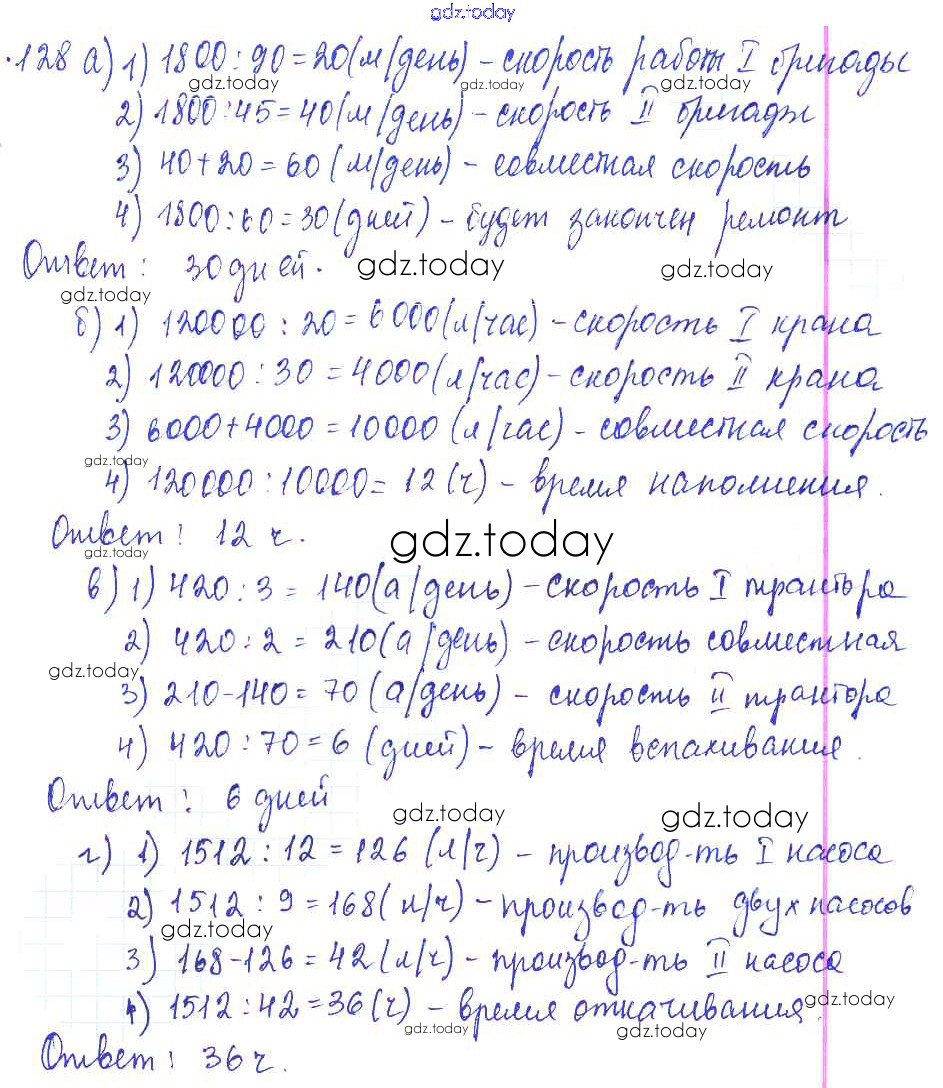 gdz.today
128 а) 1) 1800 : 90 = 20 (м/день) - скорость работы I бригады
gdz.today gdz.today gdz.today
2) 1800 : 45 = 40 (м/день) - скорость II бригады
3) 40 + 20 = 60 (м/день) - совместная скорость
4) 1800 : 60 = 30 (дней) - будет закончен ремонт
Ответ: 30 дней. gdz.today gdz.today
gdz.today
б) 1) 120000 : 20 = 6000 (л/час) - скорость I крана
2) 120000 : 30 = 4000 (л/час) - скорость II крана
3) 6000 + 4000 = 10000 (л/час) - совместная скорость
gdz.today
4) 120000 : 10000 = 12 (ч) - время наполнения.
Ответ: 12 ч. gdz.today
gdz.today
в) 1) 420 : 3 = 140 (а/день) - скорость I трактора
2) 420 : 2 = 210 (а/день) - скорость совместная
gdz.today gdz.today
3) 210 - 140 = 70 (а/день) - скорость II трактора
4) 420 : 70 = 6 (дней) - время вспахивания.
Ответ: 6 дней
gdz.today gdz.today
г) 1) 1512 : 12 = 126 (л/ч) - производ-ть I насоса
2) 1512 : 9 = 168 (л/ч) - производ-ть двух насосов
gdz.today
3) 168 - 126 = 42 (л/ч) - производ-ть II насоса
4) 1512 : 42 = 36 (ч) - время откачивания.
gdz.today gdz.today gdz.today
Ответ: 36 ч.